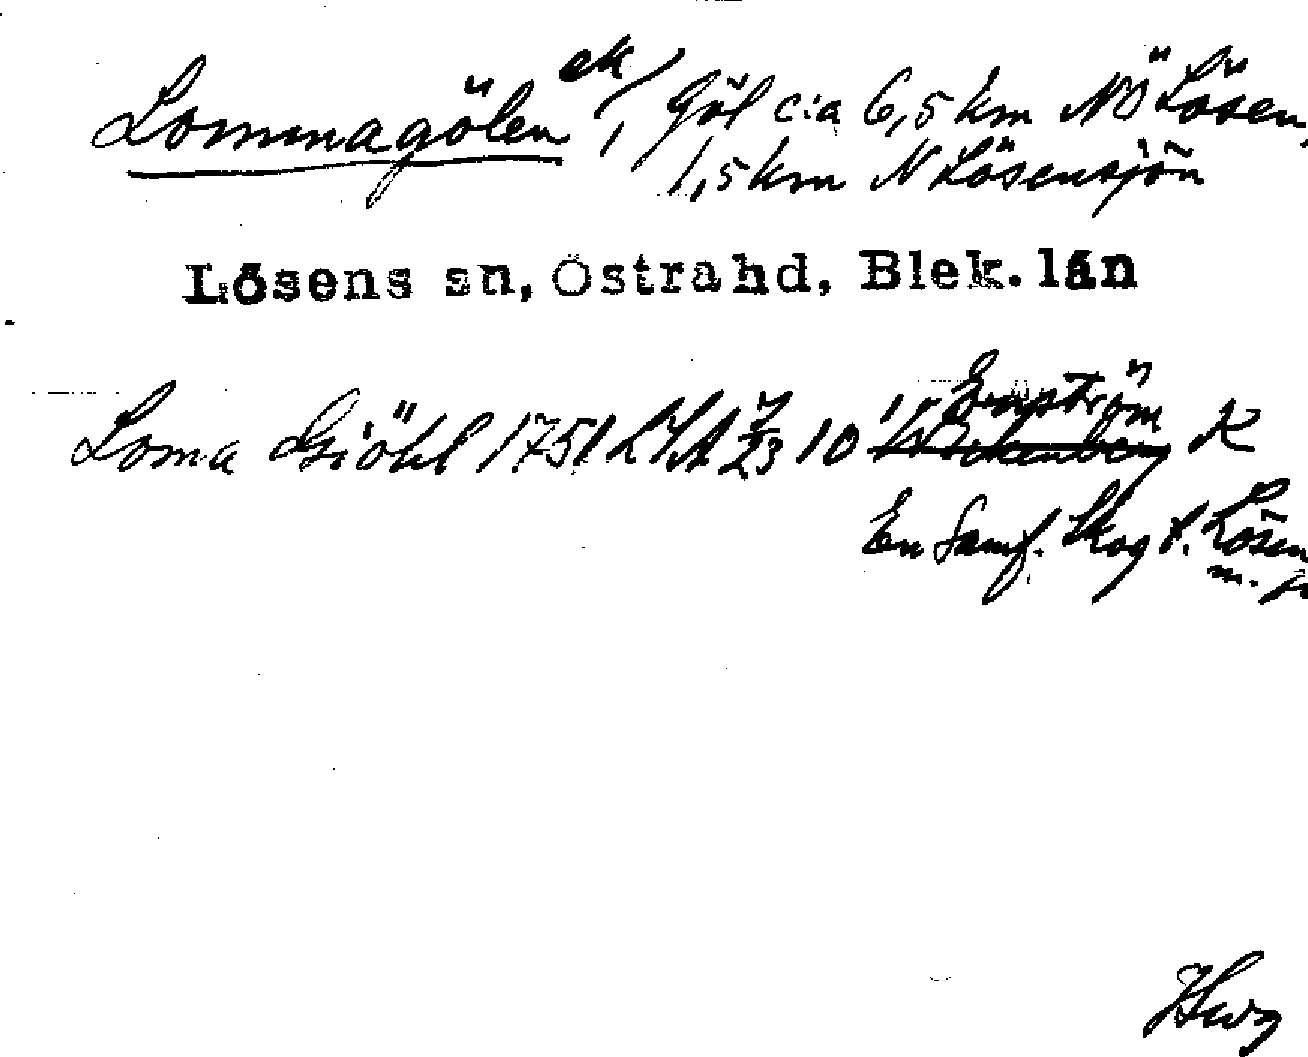 Lommagölen ek/, Göl c:a 6,5 km NÖ Lösen,
1,5 km N Lösensjön
Lösens sn, Östra hd, Blek. län
Loma Giöhl 1751 LSA 10 Enström K
En Samf. Skog t. Lösen
m. fl